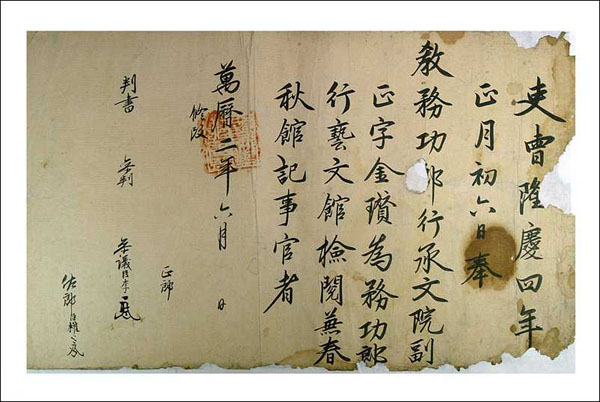 吏曹隆慶四年
正月初六日奉
教務功郎行承文院副
正字金瓚為務功郎
行藝文館檢閱兼春
秋館記事官者
萬曆二年六月 日
修改
判書
參判
參議臣李
正郎
佐郎臣